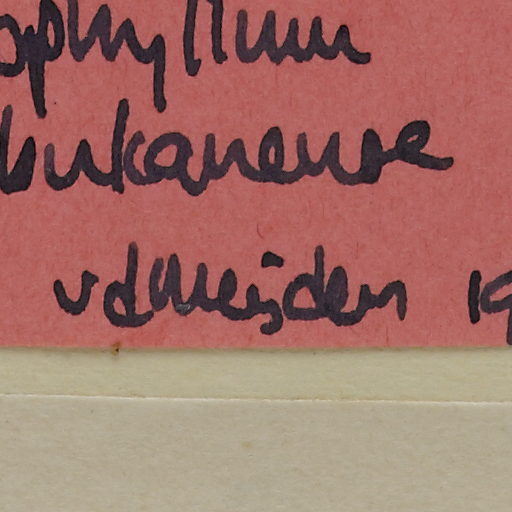 ophyllum
bukanense
vdMeijden 19